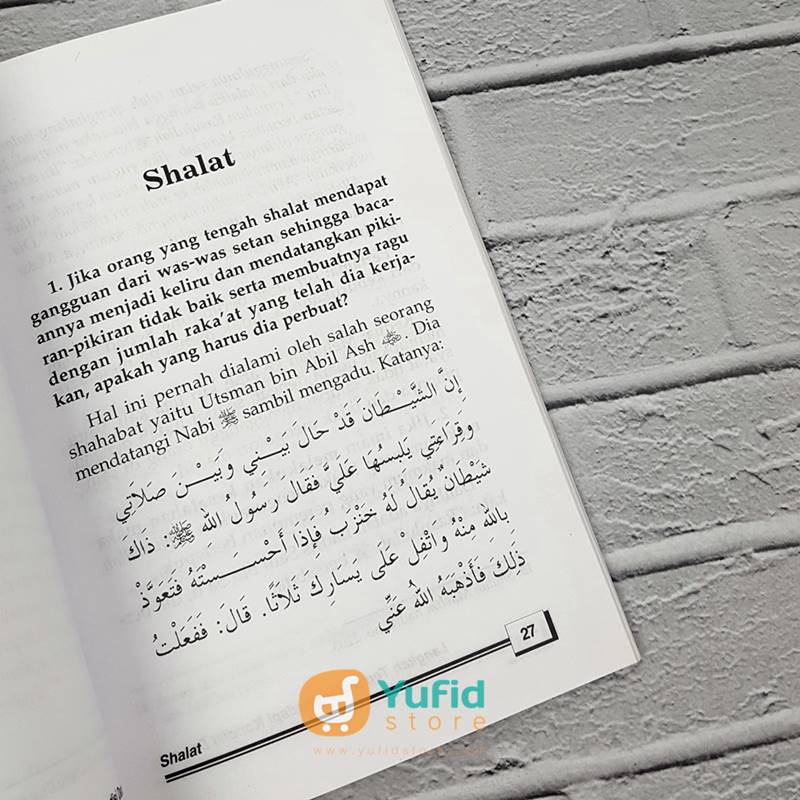 Shalat
1. Jika orang yang tengah shalat mendapat
gangguan dari was-was setan sehingga baca-
annya menjadi keliru dan mendatangkan piki-
ran-pikiran tidak baik serta membuatnya ragu
dengan jumlah raka'at yang telah dia kerja-
kan, apakah yang harus dia perbuat?
Hal ini pernah dialami oleh salah seorang
shahabat yaitu Utsman bin Abil Ash . Dia
mendatangi Nabi ﷺ sambil mengadu. Katanya:
إِنَّ الشَّيْطَانَ قَدْ حَالَ بَيْنِي وَبَيْنَ صَلَاتِي
وَقِرَاءَتِي يَلْبِسُهَا عَلَيَّ فَقَالَ رَسُولُ اللهِ ﷺ: ذَاكَ
شَيْطَانٌ يُقَالُ لَهُ خَنْزَبٌ فَإِذَا أَحْسَسْتَهُ فَتَعَوَّذْ
بِاللهِ مِنْهُ وَاتْفِلْ عَلَى يَسَارِكَ ثَلَاثًا. قَالَ: فَفَعَلْتُ
ذَلِكَ فَأَذْهَبَهُ اللهُ عَنِّي
Shalat 27
Yufid
store
www.yufidstore.com